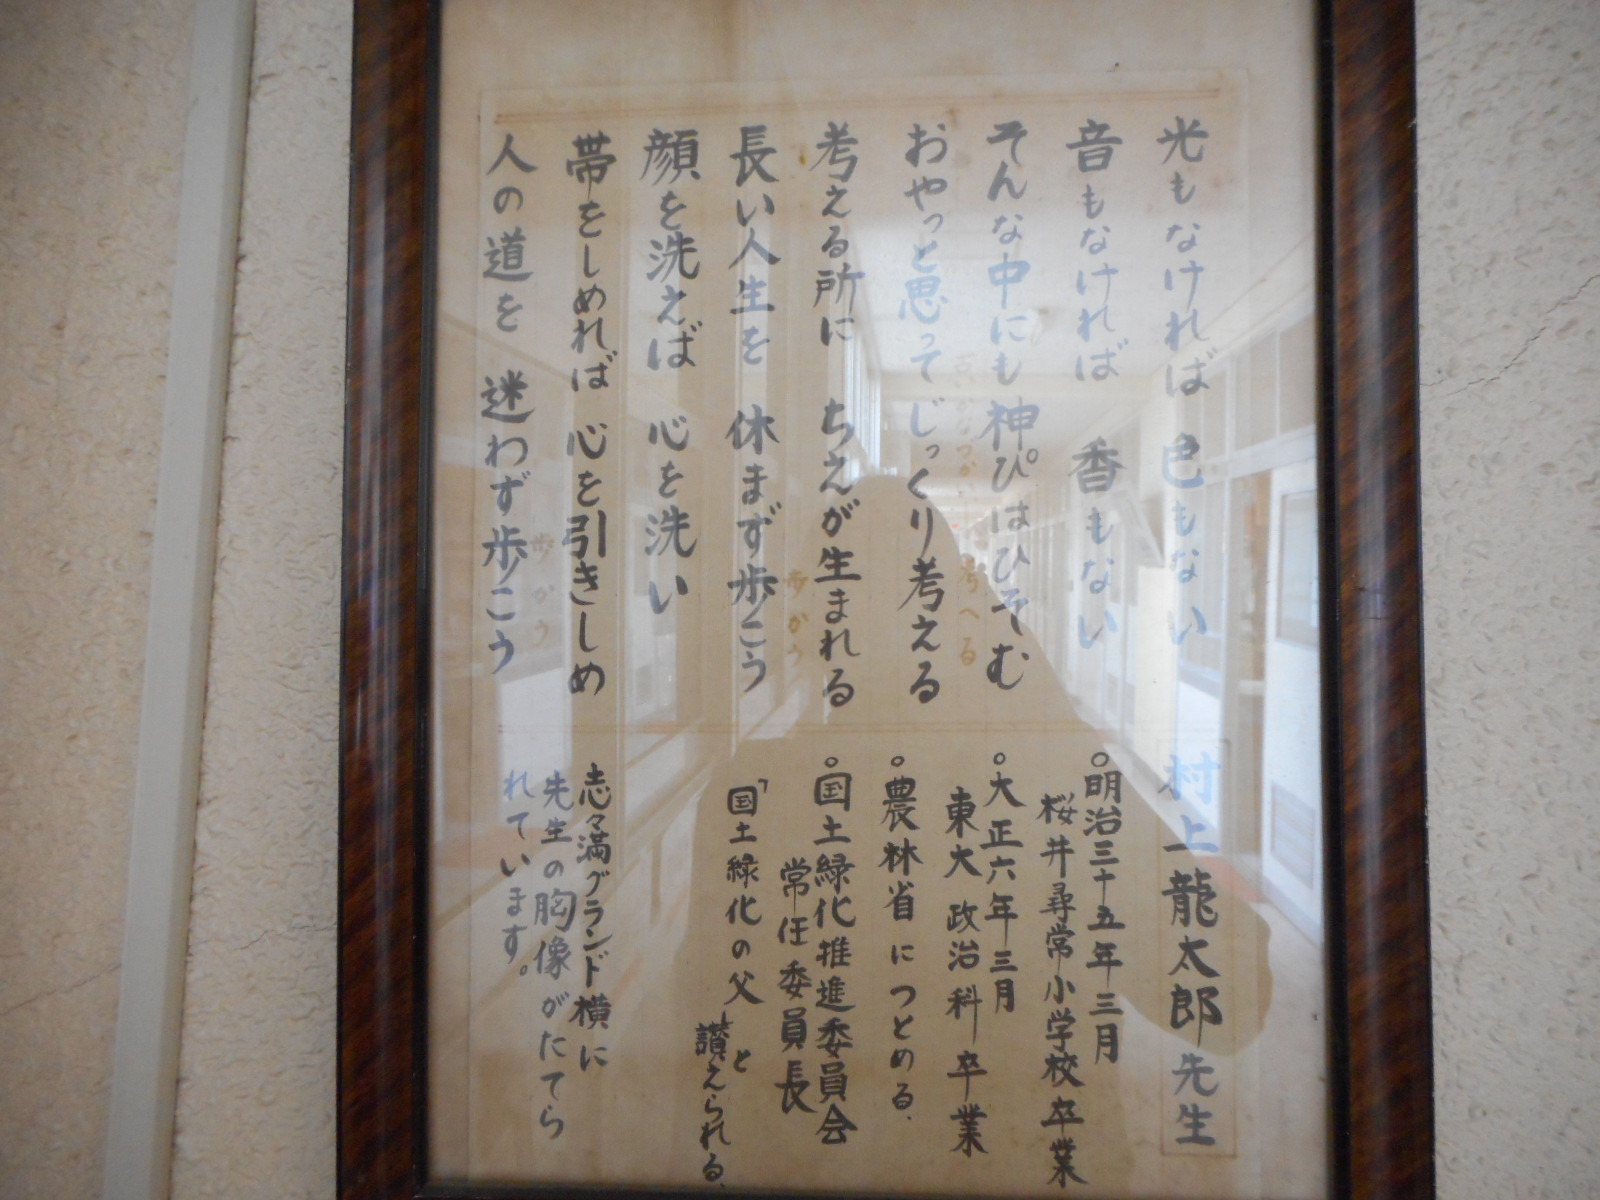 光もなければ 色もない 村上龍太郎先生
音もなければ 香もない
そんな中にも神ぴはひそむ
おやっと思って じっくり考える
考える所に ちえが生まれる
長い人生を 休まず歩こう
顔を洗えば 心を洗い
帯をしめれば 心を引きしめ
人の道を 迷わず歩こう
考へる
歩かう
歩かう
○明治三十五年三月
桜井尋常小学校卒業
○大正六年三月
東大 政治科 卒業
○農林省につとめる.
○国土緑化推進委員会
常任委員長
「国土緑化の父」と
讃えられる.
志々満グランド横に
先生の胸像がたてら
れています。